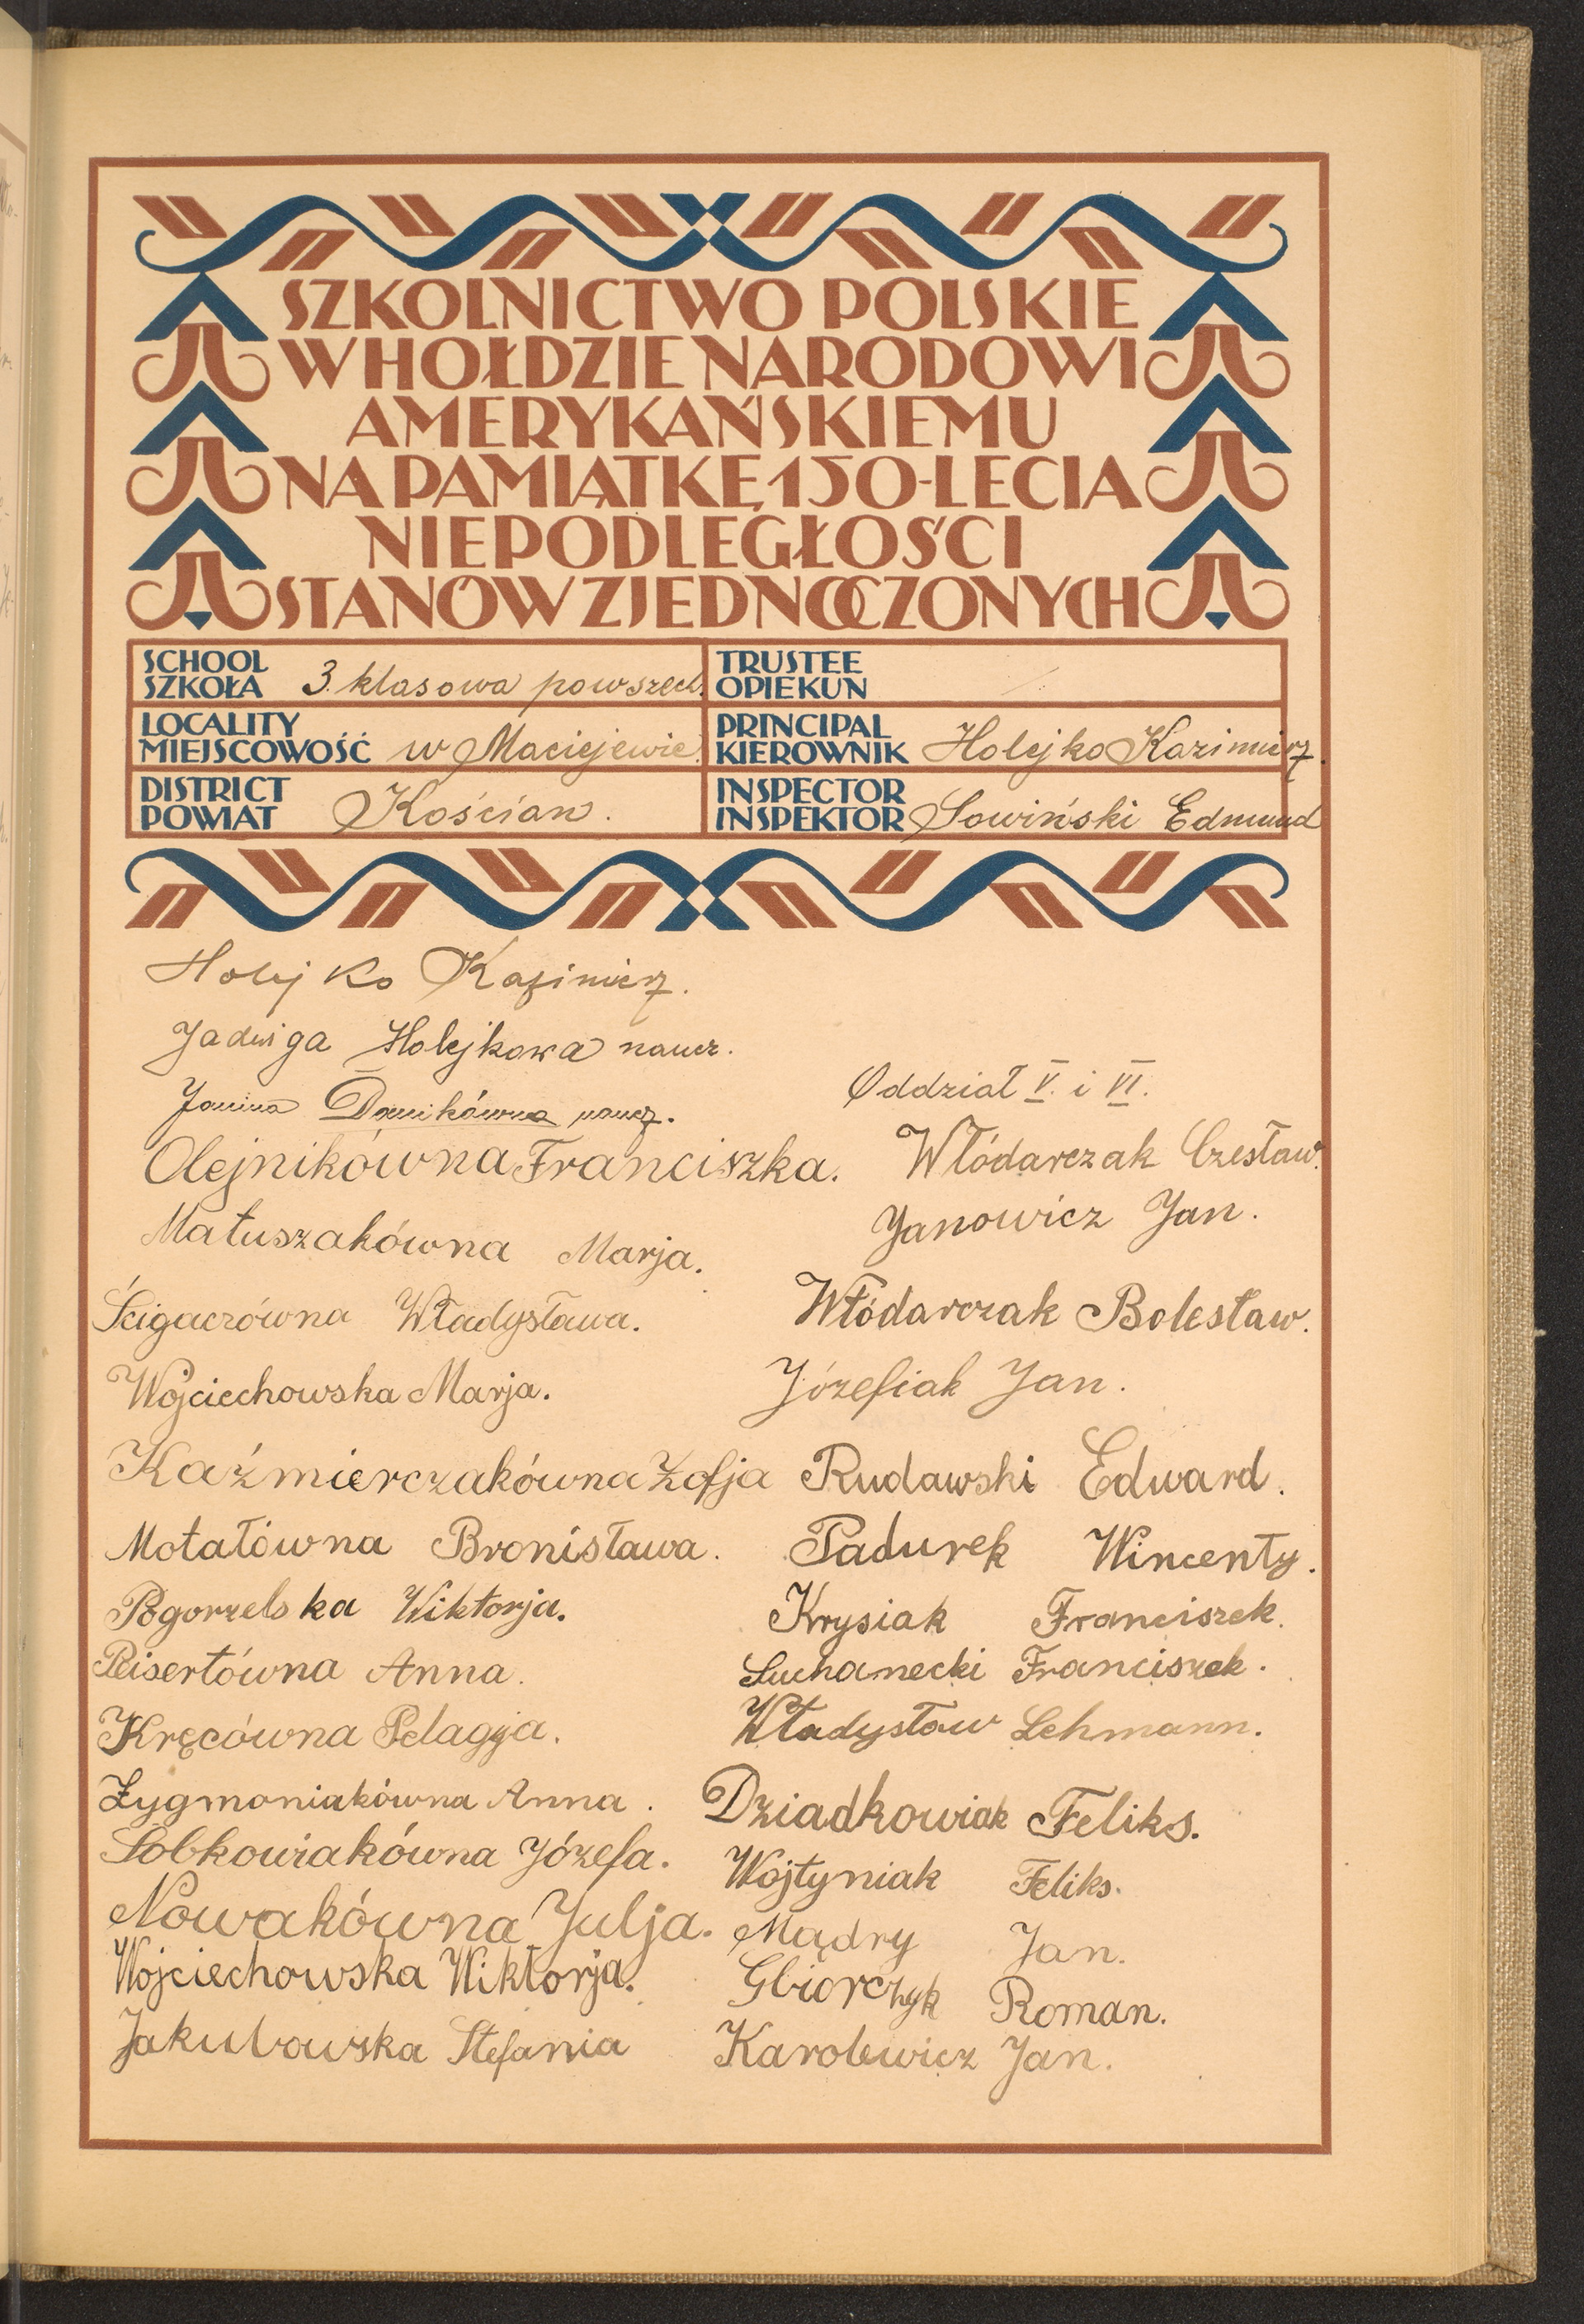 SZKOLNICTWO POLSKIE
W HOŁDZIE NARODOWI
AMERYKAŃSKIEMU
NA PAMIĄTKĘ 150-LECIA
NIEPODLEGŁOŚCI
STANÓW ZJEDNOCZONYCH
SCHOOL
SZKOŁA 3. klasowa powszech.
TRUSTEE
OPIEKUN
LOCALITY
MIEJSCOWOŚĆ w Maciejewie.
PRINCIPAL
KIEROWNIK Holejko Kazimierz.
DISTRICT
POWIAT Kościan.
INSPECTOR
INSPEKTOR Sowiński Edmund
Holejko Kazimierz.
Jadwiga Holejkowa naucz.
Janina Danikówna naucz.
Olejnikówna Franciszka.
Matuszakówna Marja.
Ścigaczówna Władysława.
Wojciechowska Marja.
Kaźmierczakówna Zofja
Motałówna Bronisława.
Pogorzelska Wiktorja.
Peisertówna Anna.
Kręcówna Pelagja.
Zygmoniakówna Anna.
Sobkowiakówna Józefa.
Nowakówna Julja.
Wojciechowska Wiktorja.
Jakubowska Stefania
Oddział V. i VI.
Włódarczak Czesław.
Janowicz Jan.
Włódarczak Bolesław.
Józefiak Jan.
Rudawski Edward.
Padurek Wincenty.
Krysiak Franciszek.
Suchanecki Franciszek.
Władysław Lehmann.
Dziadkowiak Feliks.
Wojtyniak Feliks.
Mądry Jan.
Gbiorczyk Roman.
Karolewicz Jan.